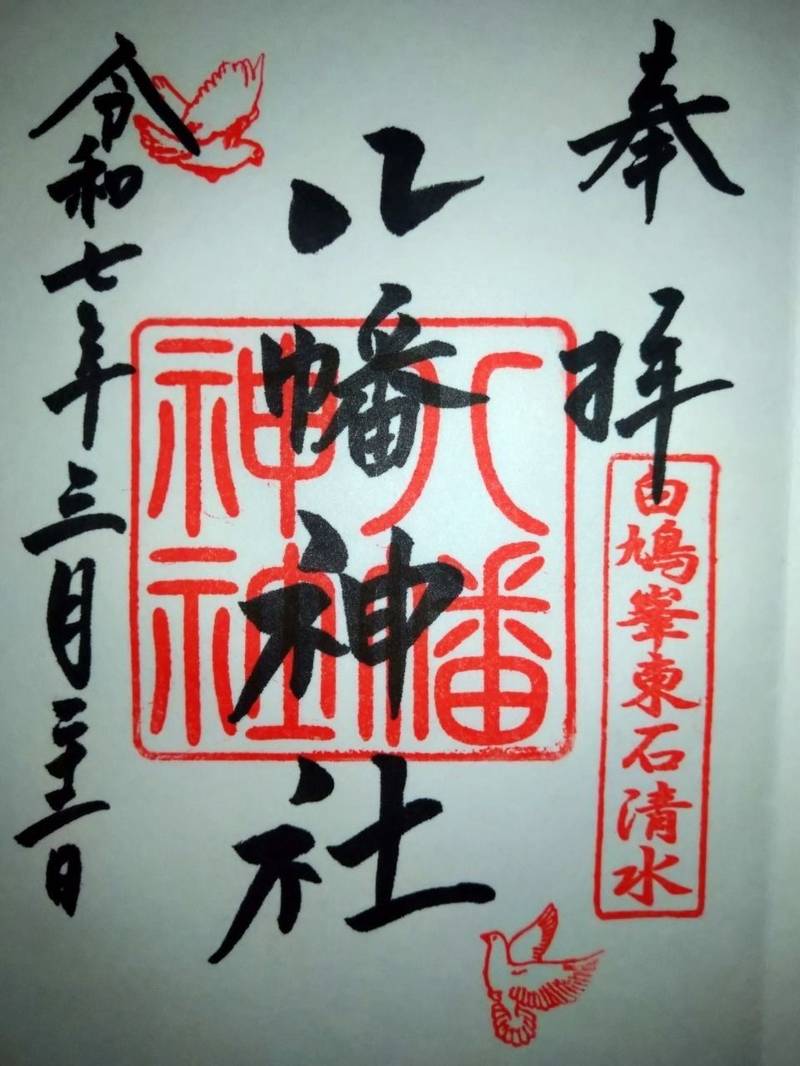 奉拝
白鳩峯東石清水
八幡神社
八幡
神社
令和七年三月二十二日